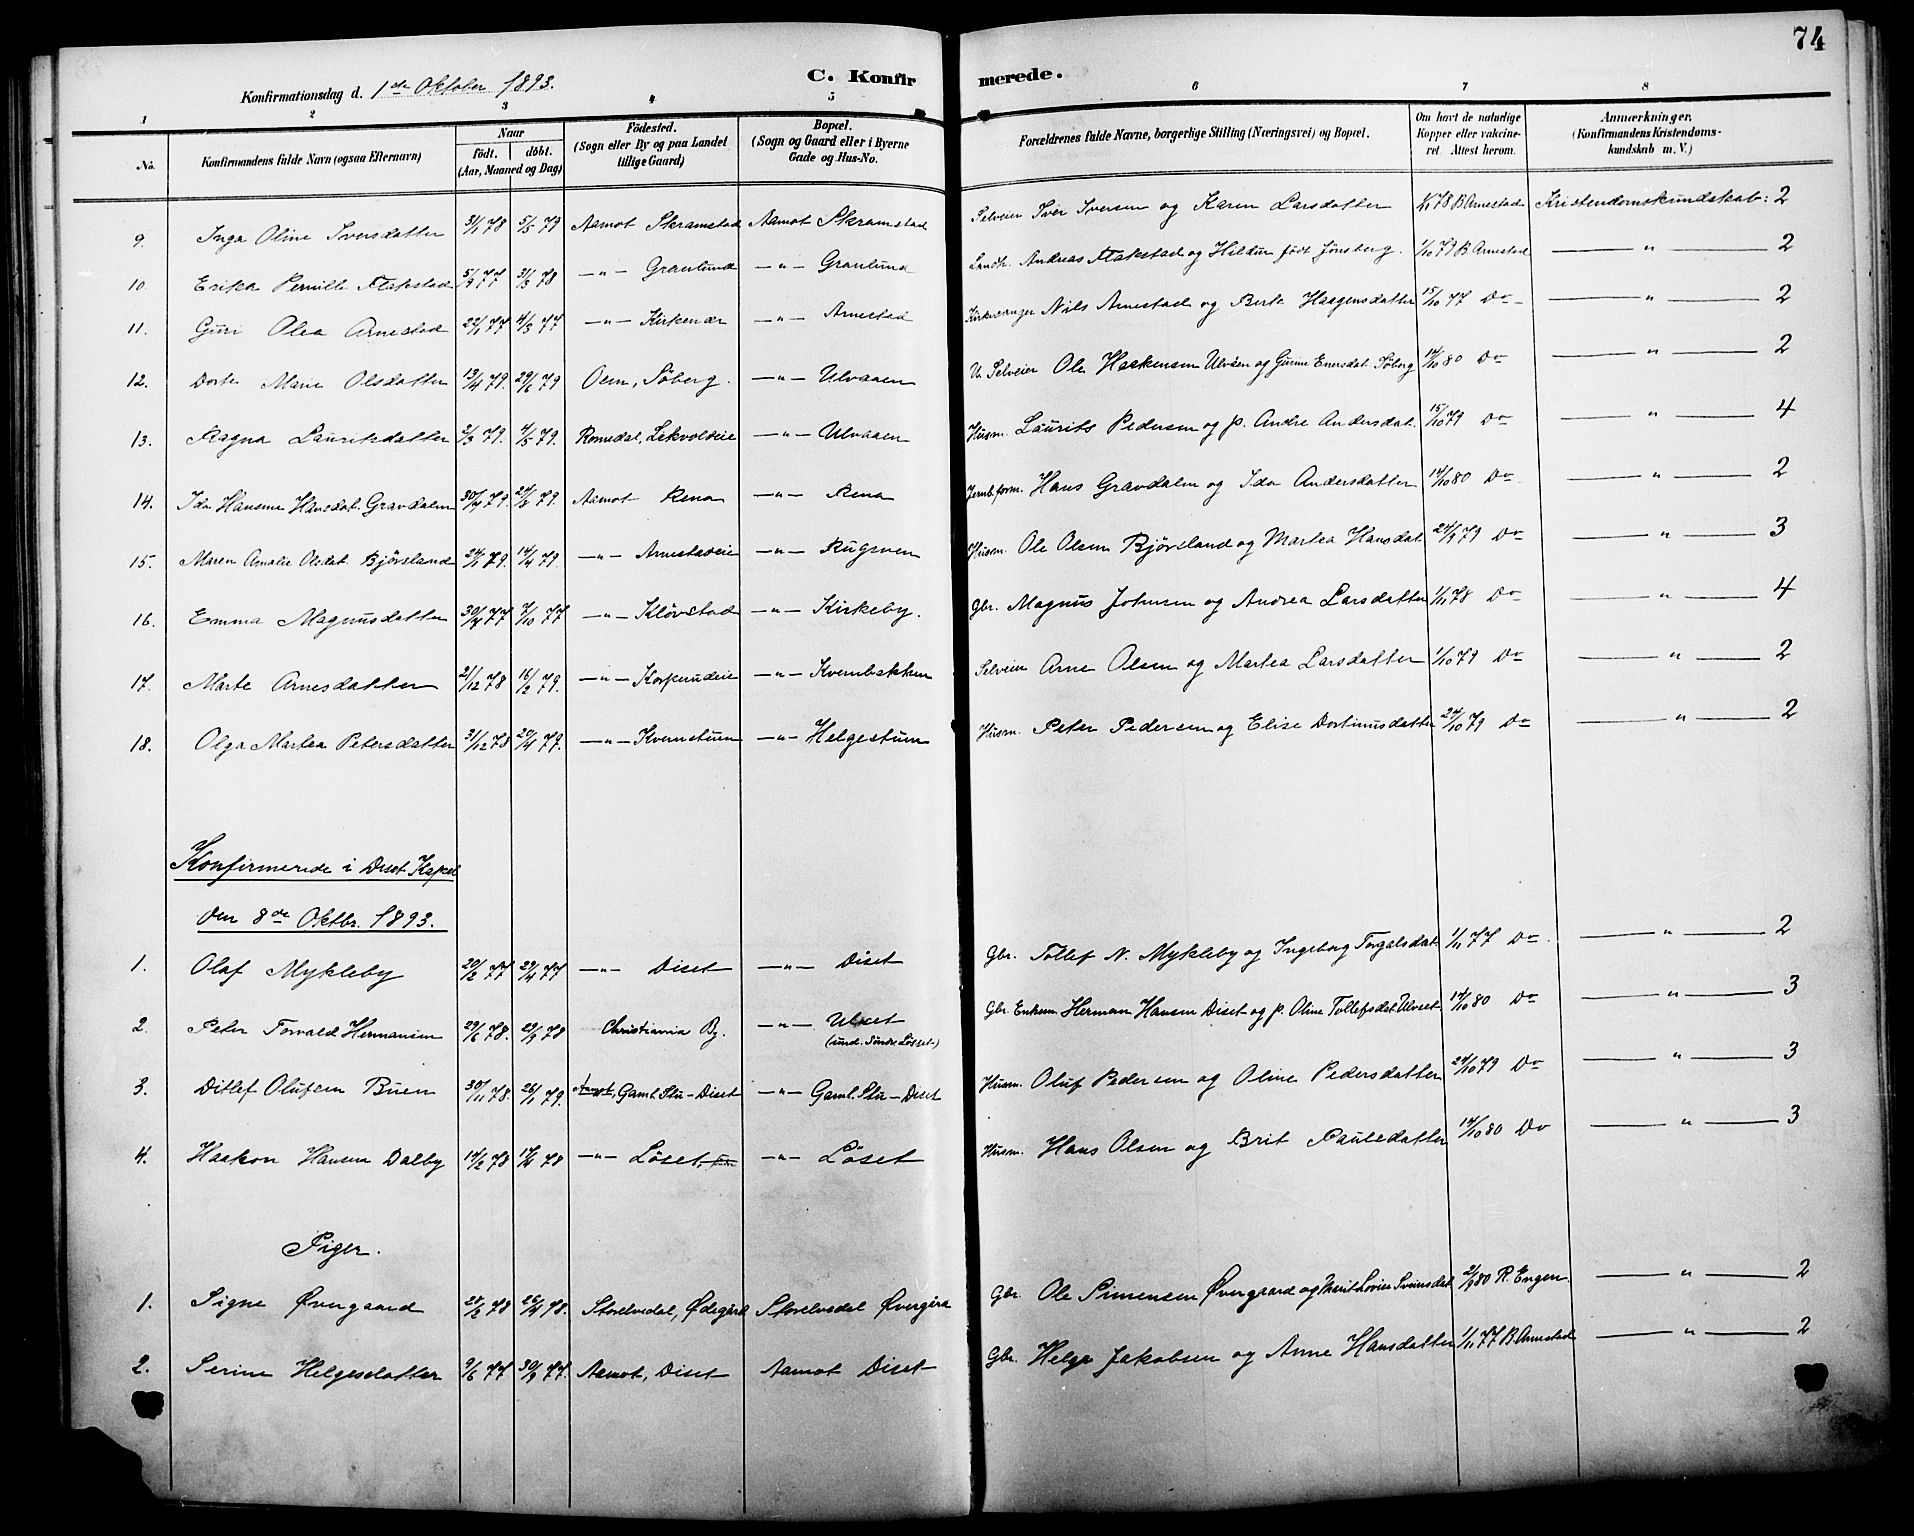 74
C. Konfirmerede.
Konfirmationsdag d. 1ste Oktober 1893.
1 2 3 4 5 6 7 8
No. Konfirmandens fulde Navn (ogsaa Efternavn) Naar født. døbt. (Aar, Maaned og Dag) Fødested. (Sogn eller By og paa Landet tillige Gaard) Bopæl. (Sogn og Gaard eller i Byerne Gade og Hus-No. Forældrenes fulde Navne, borgerlige Stilling (Næringsvei) og Bopæl. Om havt de naturlige Kopper eller vakcineret. Attest herom. Anmærkninger. (Konfirmandens Kristendomskundskab m. V.)
9. Inga Oline Iversdatter 31/1 78 5/5 79 Aamot Skramstad Aamot Skramstad Selveier Iver Iversen og Karen Larsdatter 78 B. Arnestad Kristendomskundskab: 2
10. Erika Pernille Flakstad 5/9 77 31/3 78 —"— Granlund —"— Granlund Landh. Andreas Flakstad og Hildur født Jønsberg. 1/10 79 B. Arnestad —"— 2
11. Guri Olea Arnestad 22/1 77 4/3 77 —"— Kirkenær —"— Arnestad Kirkesanger Nils Arnestad og Berte Haagensdatter 15/10 77 Do —"— 2
12. Dorte Marie Olsdatter 13/4 79. 29/6 79 Oem, Søberg. —"— Ulvaaen Selveier Ole Haakensen Ulvåen og Gurine Enersdat. Søberg 14/10 80 Do —"— 2
13. Ragna Lauritsdatter 2/3 79. 4/5 79. Romedal, Lekvoldeie —"— Ulvaaen Husm. Laurits Pedersen og p. Andre Andersdat. 15/10 79 Do —"— 4
14. Ida Hansine Hansdat. Gravdalen 30/4 79. 79. Aamot Rena —"— Rena Jernb.form. Hans Gravdalen og Ida Andersdatter 14/10 80 Do —"— 2
15. Maren Amalie Olsdat. Bjørsland 24/1 79. 14/4 79. —"— Arnestadeie —"— Rugsveen Husm. Ole Olsen Bjørsland og Martea Hansdat. 24/9 79 Do —"— 3
16. Emma Magnusdatter 30/4 77 7/10 77 —"— Kløvstad —"— Kirkeby. Gbr. Magnus Johnsen og Andrea Larsdatter 1/11 78 Do —"— 4
17. Marte Arnesdatter 21/12 78 16/2 79. —"— Korperudeie —"— Kvernbakken Selveier Arne Olsen og Martea Larsdatter 1/10 79 Do —"— 2
18. Olga Martea Petersdatter 31/12 78 20/4 79. —"— Kvernstuen —"— Helgestuen Husm. Peter Pedersen og Elise Dortinusdatter 24/10 79 Do —"— 2
Konfirmerede i Diset Kapel
den 8de Oktbr. 1893.
1. Olaf Mykleby 20/2 77 29/4 77 —"— Diset —"— Diset Gbr. Tollef N. Mykleby og Ingeborg Torgalsdat. 1/11 77 Do. —"— 2
2. Peter Torvald Hermansen 29/6 78. 29/9 78 Christiania By. —"— Ulset Gbr. Enkem. Herman Hansen Diset og p. Oline Tollefsdat. Ulvset 14/10 80 Do —"— 3
(und. Søndre Løsset)
3. Ditlef Olufsen Buen 30/11 78. 26/1 79. Aamot, Gaml. Stu - Diset —"— Gaml. Stu - Diset Husm. Oluf Pedersen og Oline Pedersdatter 24/10 79 Do —"— 3
4. Haakon Hansen Dalby 14/2 78 78 —"— Løset, —"— Löset Husm. Hans Olsen og Brit Paulsdatter 14/10 80 Do —"— 3
Piger.
1. Signe Øvergaard 28/2 78 26/4 78. Storelvedal, Ødegård Storelvedal Øvergård Gbr. Ole Simensen Øvergaard og Marit Lovise Sveinsdat. 2/9 80 R. Engen. —"— 2
2. Serine Helgesdatter 9/6 77 30/9 77. Aamot, Diset Aamot Diset Gbr. Helge Jakobsen og Anne Hansdatter 1/11 77 B. Arnestad —"— 2